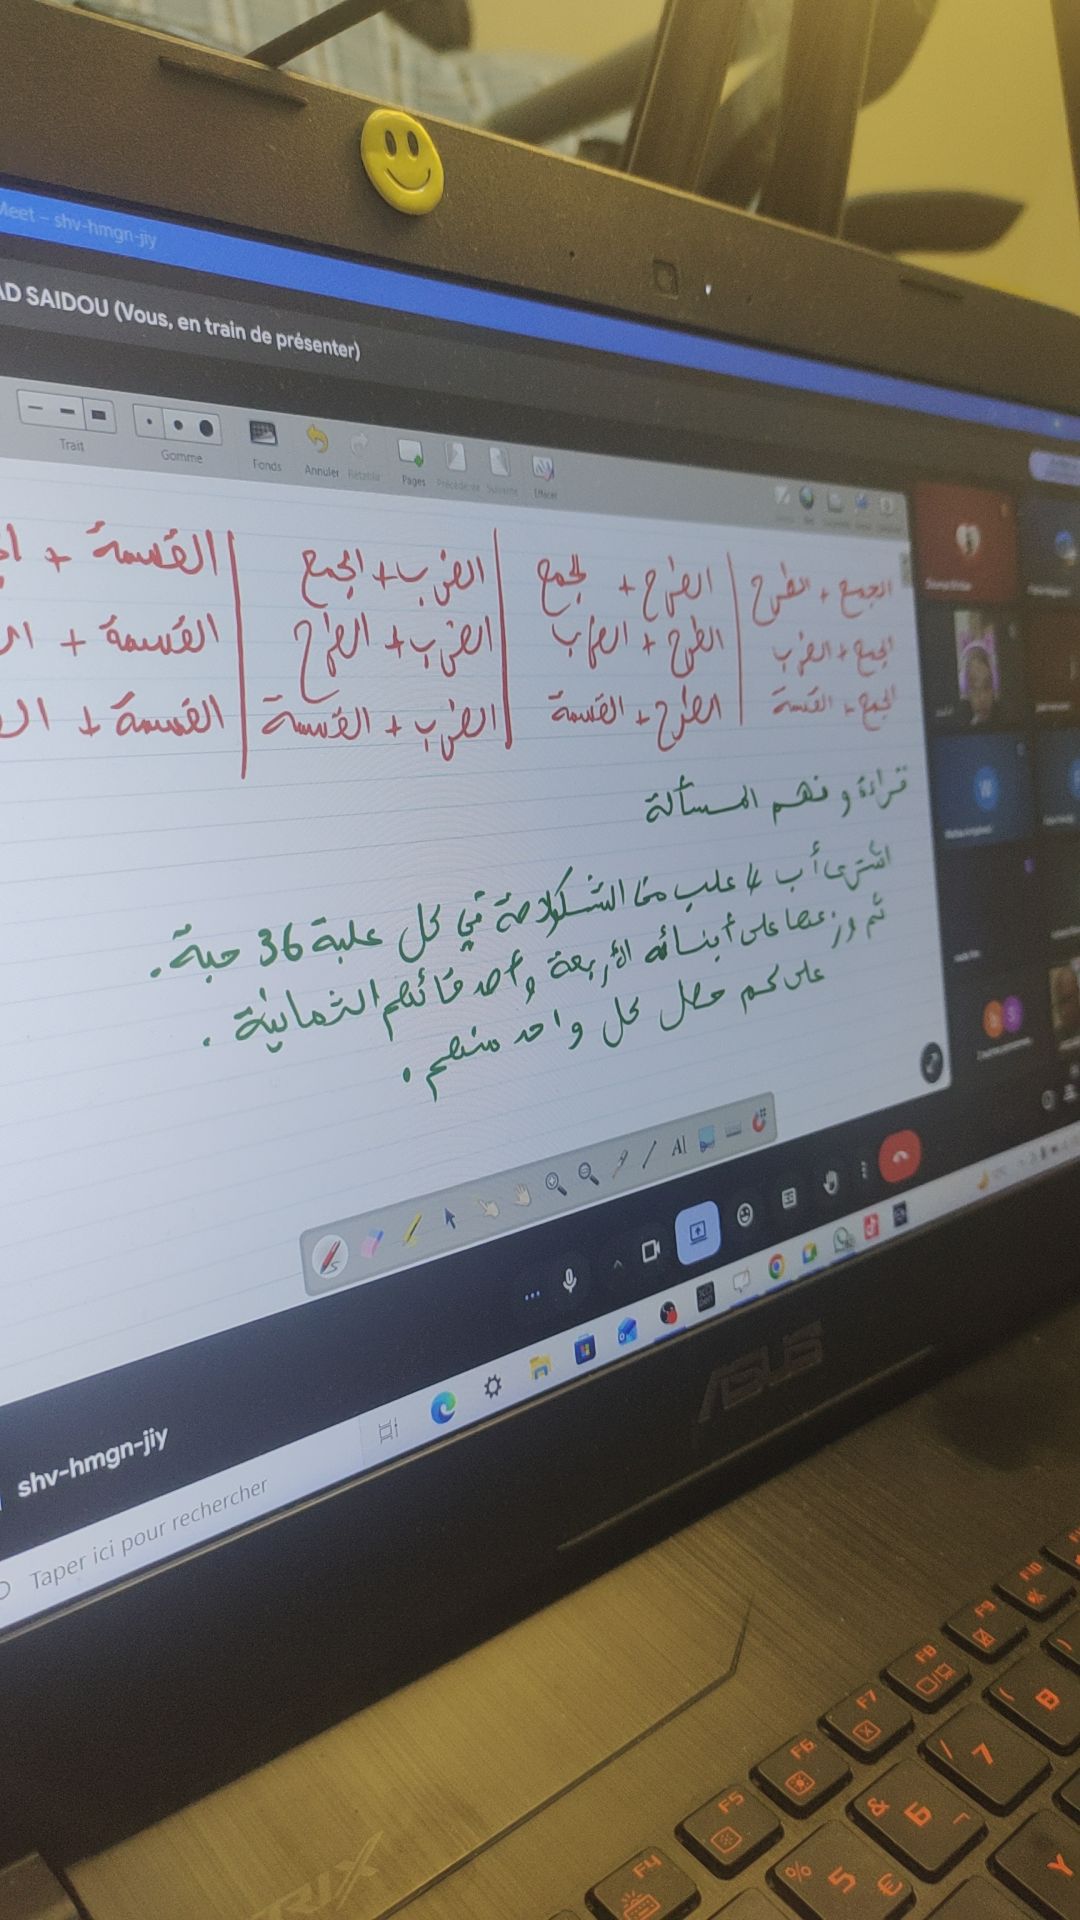 Meet – shv-hmgn-jiy
AD SAIDOU (Vous, en train de présenter)
Trait
Gomme
Fonds
Annuler
Rétablir
Pages
Précédente
Suivante
Effacer
الجمع + الطرح | الطرح + الجمع | الضرب + الجمع | القسمة +
الجمع + الضرب | الطرح + الضرب | الضرب + الطرح | القسمة +
الجمع + القسمة | الطرح + القسمة | الضرب + القسمة | القسمة +
قراءة و فهم المسألة
اشترى أب 4 علب من الشكولاطة في كل علبة 36 حبة .
ثم وزعها على أبنائه الأربعة وأصدقائهم الثمانية .
على كم حصل كل واحد منهم .
W
S
AI
shv-hmgn-jiy
Taper ici pour rechercher
ASUS
TRIX
F10
F9
F8
F7
F6
F5
F4
( B
/ 7
& 6 Г
% 5 €
Y